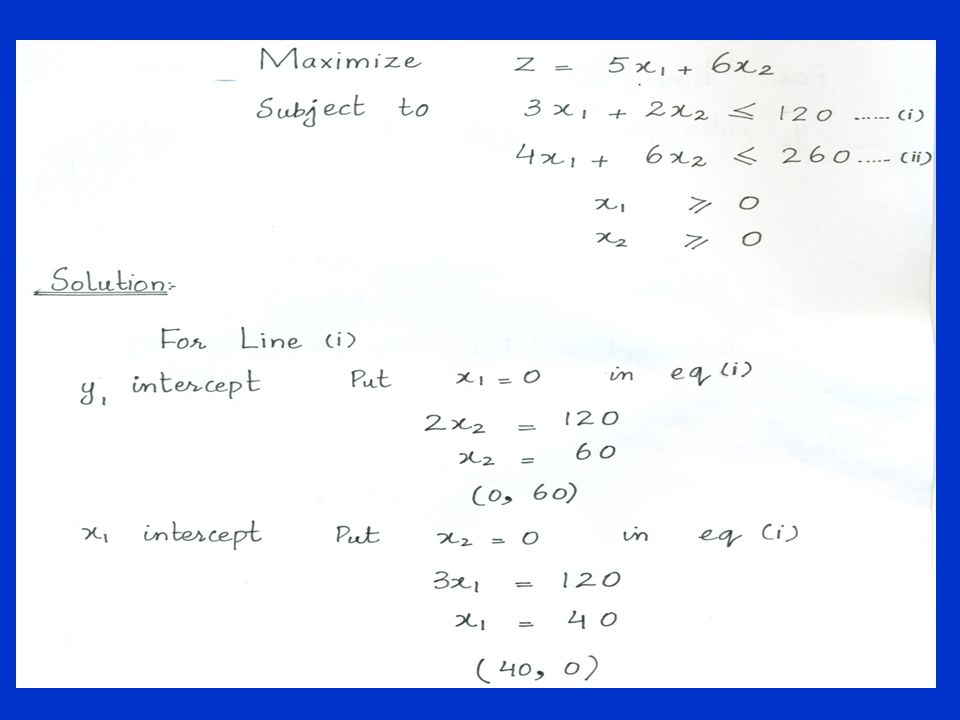 Maximize Z = 5x₁ + 6x₂
Subject to 3x₁ + 2x₂ ⩽ 120 ...... (i)
4x₁ + 6x₂ ⩽ 260 ..... (ii)
x₁ ⩾ 0
x₂ ⩾ 0
Solution:-
For Line (i)
y₁ intercept Put x₁ = 0 in eq (i)
2x₂ = 120
x₂ = 60
(0, 60)
x₁ intercept Put x₂ = 0 in eq (i)
3x₁ = 120
x₁ = 40
(40, 0)